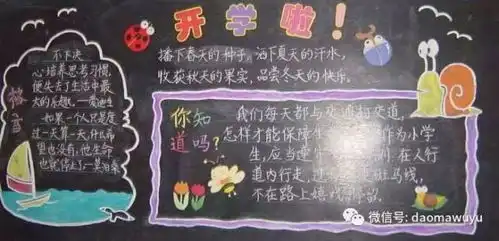 开学啦！
格言
不下决
心培养思考习惯,
便失去了生活中最
大的乐趣。—爱迪生
如果一个人只是度
过一天算一天,什么希
望也没有,他生命
也就停止了
播下春天的种子,洒下夏天的汗水,
收获秋天的果实,品尝冬天的快乐。
你知
道吗?
我们每天都与交通打交道,
怎样才能保障生 作为小学
生,应当遵 在人行
道内行走,过 斑马线,
不在路上嬉戏 停留。
微信号: daomawuyu